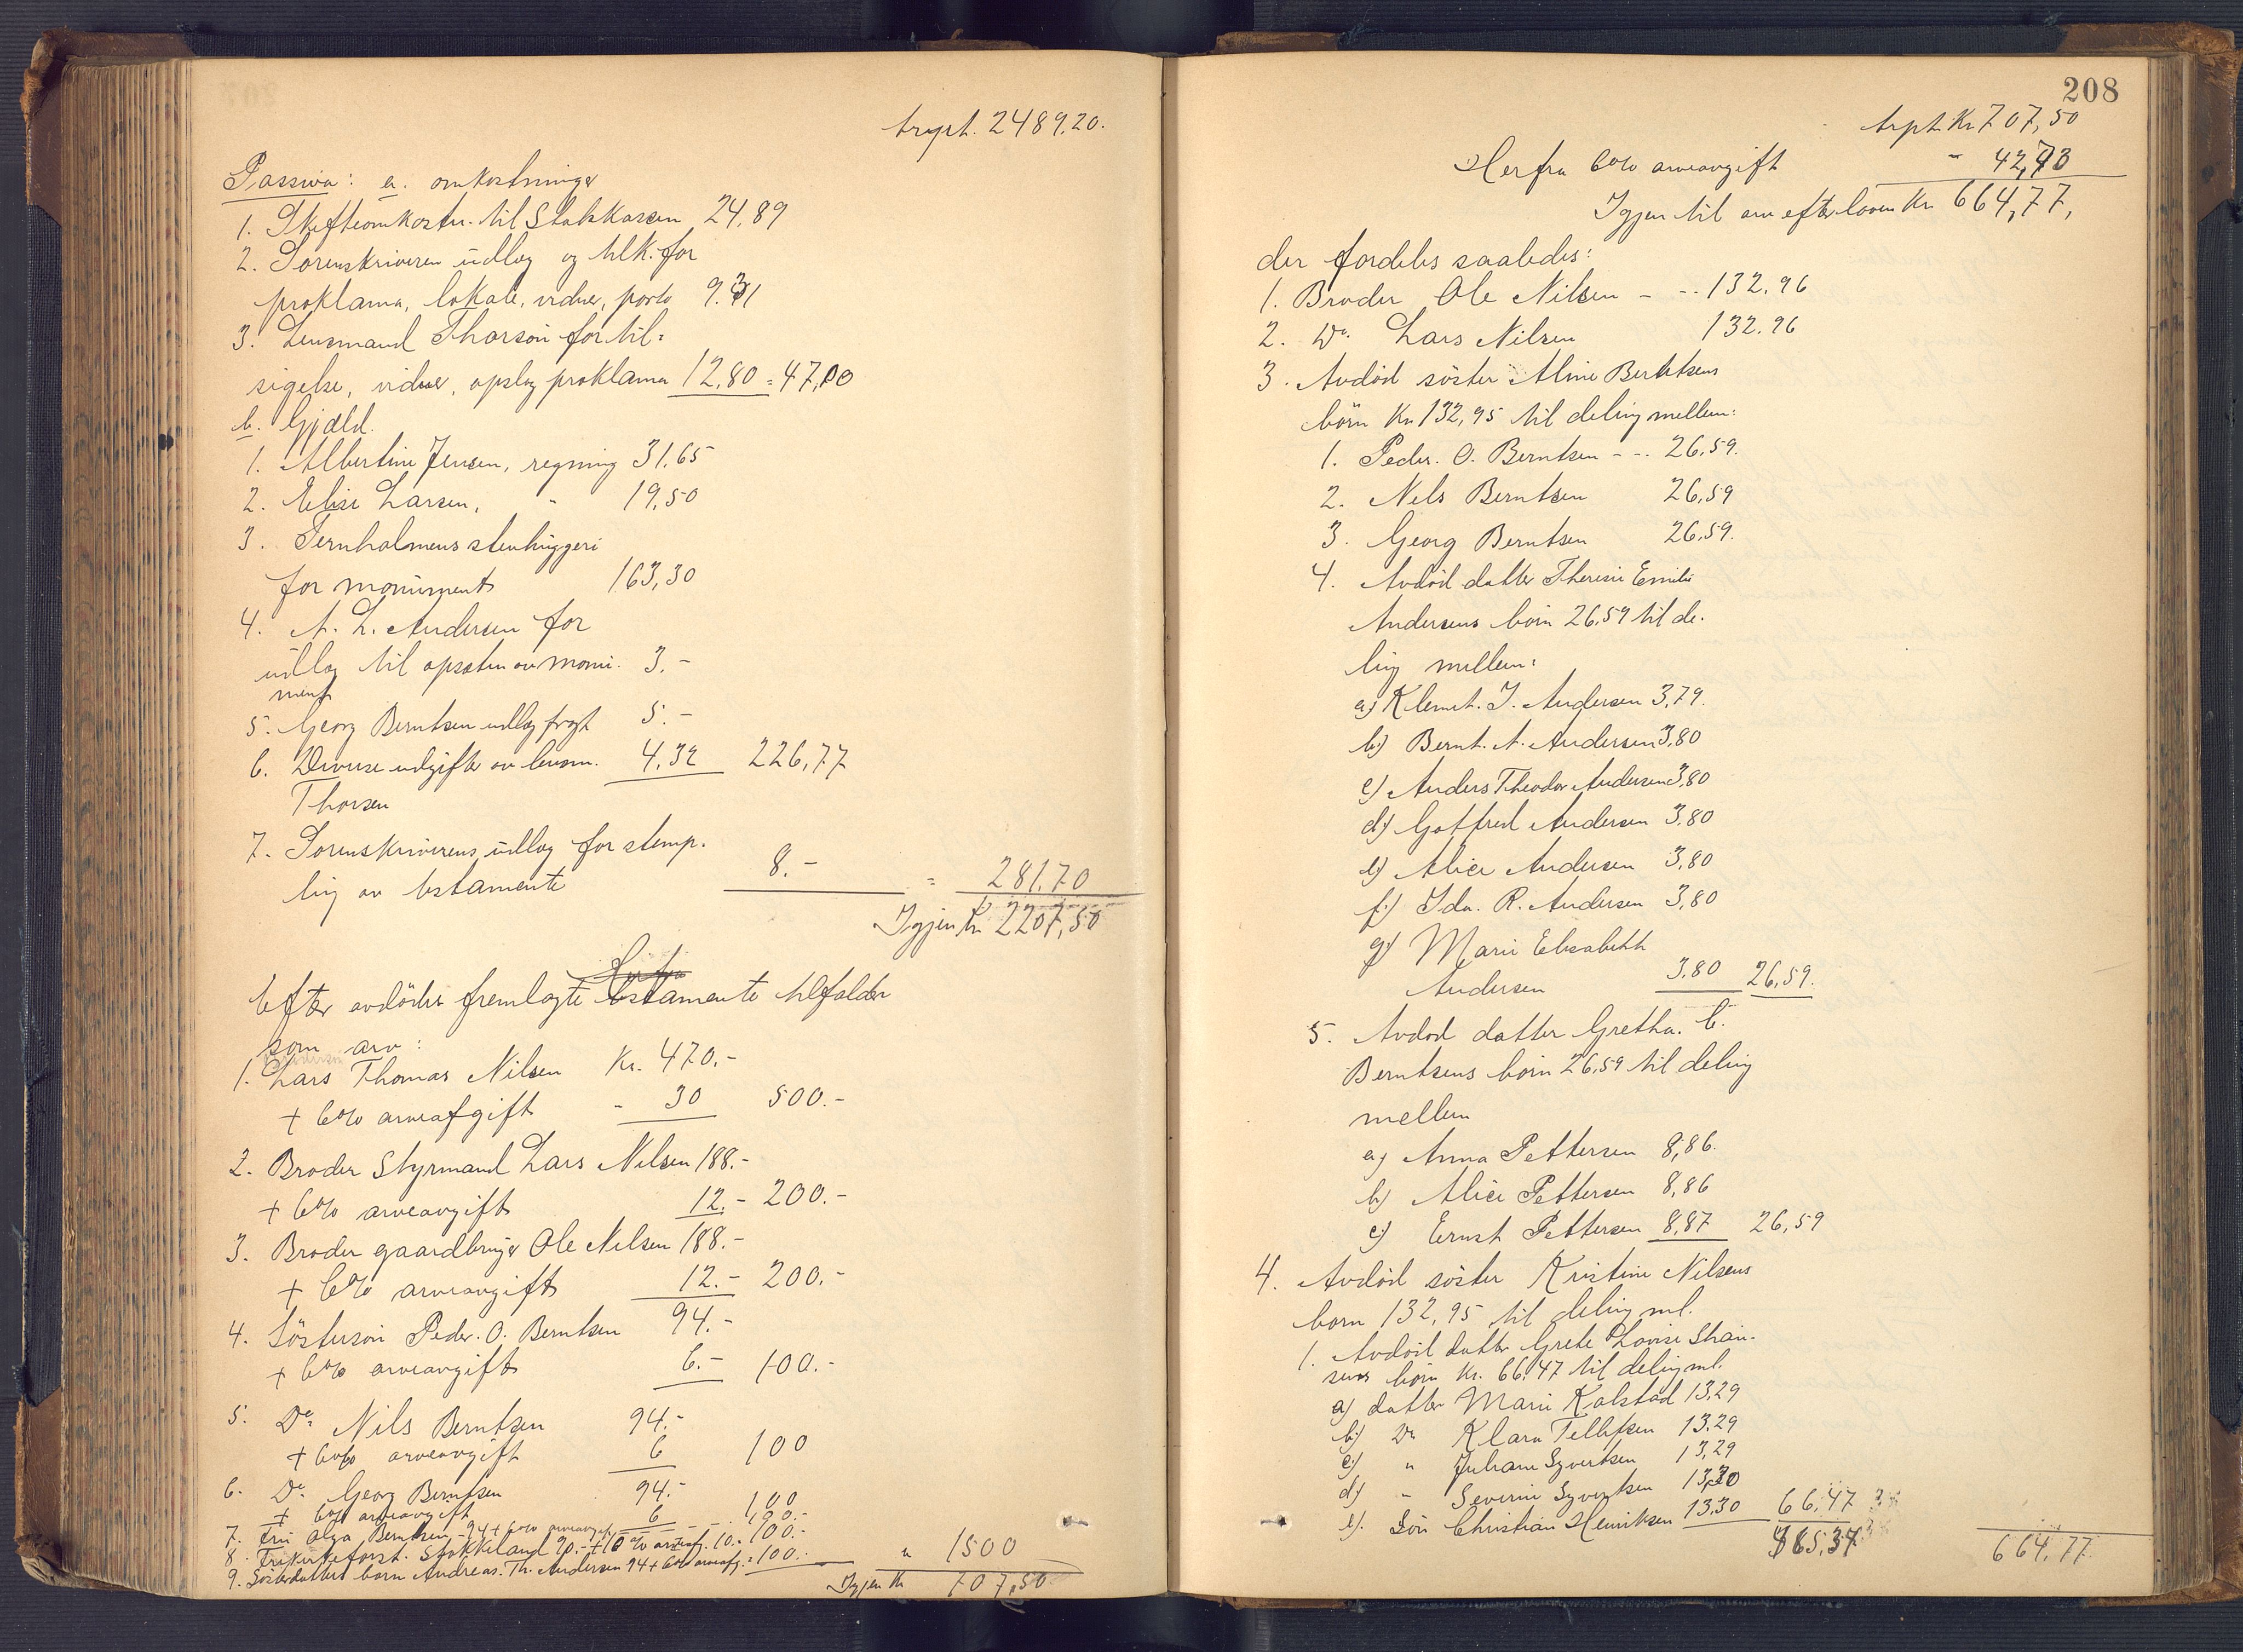 trpt. 2489.20.
Passiva: a. omkostninger
1. Skifteomkostn. til Statskassen 24,89
2. Sorenskriveren udlæg og tilk. for
proklama, lokale, vidner, porto 9.31
3. Lensmand Thorsön for til=
sigelse, vidner, opslag proklama 12,80 = 47,00
b. Gjæld.
1. Albertine Jensen, regning 31.65
2. Elise Larsen, " 19,50
3. Ternholmens stenhuggeri
for monument 163,30
4. A. L. Andersen for
udlæg til opsætn av monu- 3.-
ment
5. Georg Berntsen udlæg fragt 5.-
6. Diverse udgifter av lensm. 4,32 226,77
Thorsen
7. Sorenskriverens udlæg for stemp-
ling av testamente 8.- = 281.70
Igjen Kr 2207,50
Efter avdödes fremlagte testamente tilfalder
som arv:
1. Lars Thomas Nilsen Kr. 470.-
+ 6% arveafgift " 30 500.-
2. Broder Styrmand Lars Nilsen 188.-
+ 6% arveavgift 12.- 200.-
3. Broder gaardbruger Ole Nilsen 188.-
+ 6% arveavgift 12.- 200.-
4. Söstersön Peder. O. Berntsen 94.-
+ 6% arveavgift 6.- 100.-
5. Do Nils Berntsen 94.-
+ 6% arveavgift 6 100
6. Do Georg Berntsen 94.-
+ 6% arveavgift 6 100
7. Fru Olga Berntsen, 94 + 6% arveavgift 100.-
8. Frikirkeforst. Stokkeland 90.- + 10% arveafg. 10.- 100.-
9. Sösterdatters barn Andreas. Th. Andersen 94 + 6% arveafg. = 100.- " 1500
Igjen Kr 707,50
208
trpt. Kr 707,50
Herfra 6% arveavgift " 42,73
Igjen til arv efter loven Kr 664,77,
der fordeles saaledes:
1. Broder Ole Nilsen - -- 132.96
2. Do. Lars Nilsen 132.96
3. Avdöd söster Aline Berntsens
börn Kr 132,95 til deling mellem:
1. Peder. O. Berntsen - -. 26,59.
2. Nils Berntsen 26,59
3. Georg Berntsen 26,59.
4. Avdöd datter Therese Emilie
Andersens börn 26,59 til de-
ling mellem:
a) Klemet. J. Andersen 3,79.
b) Bernt. A. Andersen 3,80
c) Anders Theodor Andersen 3,80
d) Gotfred Andersen 3,80
e) Alice Andersen 3,80
f) Ida. R. Andersen 3,80
g) Marie Elisabeth
Andersen 3.80 26,59.
5. Avdöd datter Gretha. C.
Berntsens börn 26,59 til deling
mellem
a) Anna Pettersen 8,86.
b) Alice Pettersen 8,86
c) Ernst Pettersen 8,87 26,59
4. Avdöd söster Kristine Nilsens
börn 132,95 til deling ml.
1. Avdöd datter Grete Lovise
börn Kr. 66.47 til deling ml.
a) datter Marie Kalstad 13,29
b) Do Klara Tellefsen 13.29
c) " Juliane Syvertsen 13,29
d) " Severine Syvertsen 13,30
e). Sön Christian Henriksen 13,30 66,47
664,77